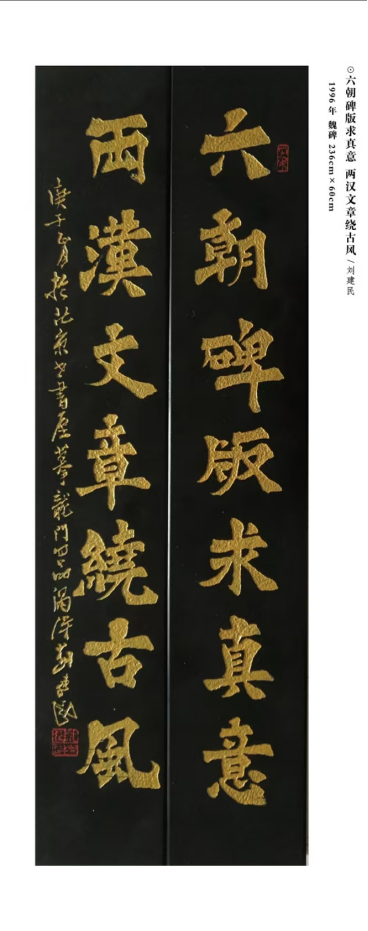 ⊙六朝碑版求真意 两汉文章绕古风/刘建民
1996年 魏碑 236cm×60cm
六朝碑版求真意
兩漢文章繞古風
庚子正月於北京老書屋摹龍門四品